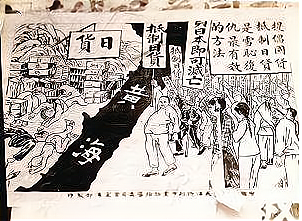 提倡國貨
抵制日貨
是雪恥復
仇最有效
的方法
日本即可滅亡
抵制日貨
抵制日貨
日貨
黃海